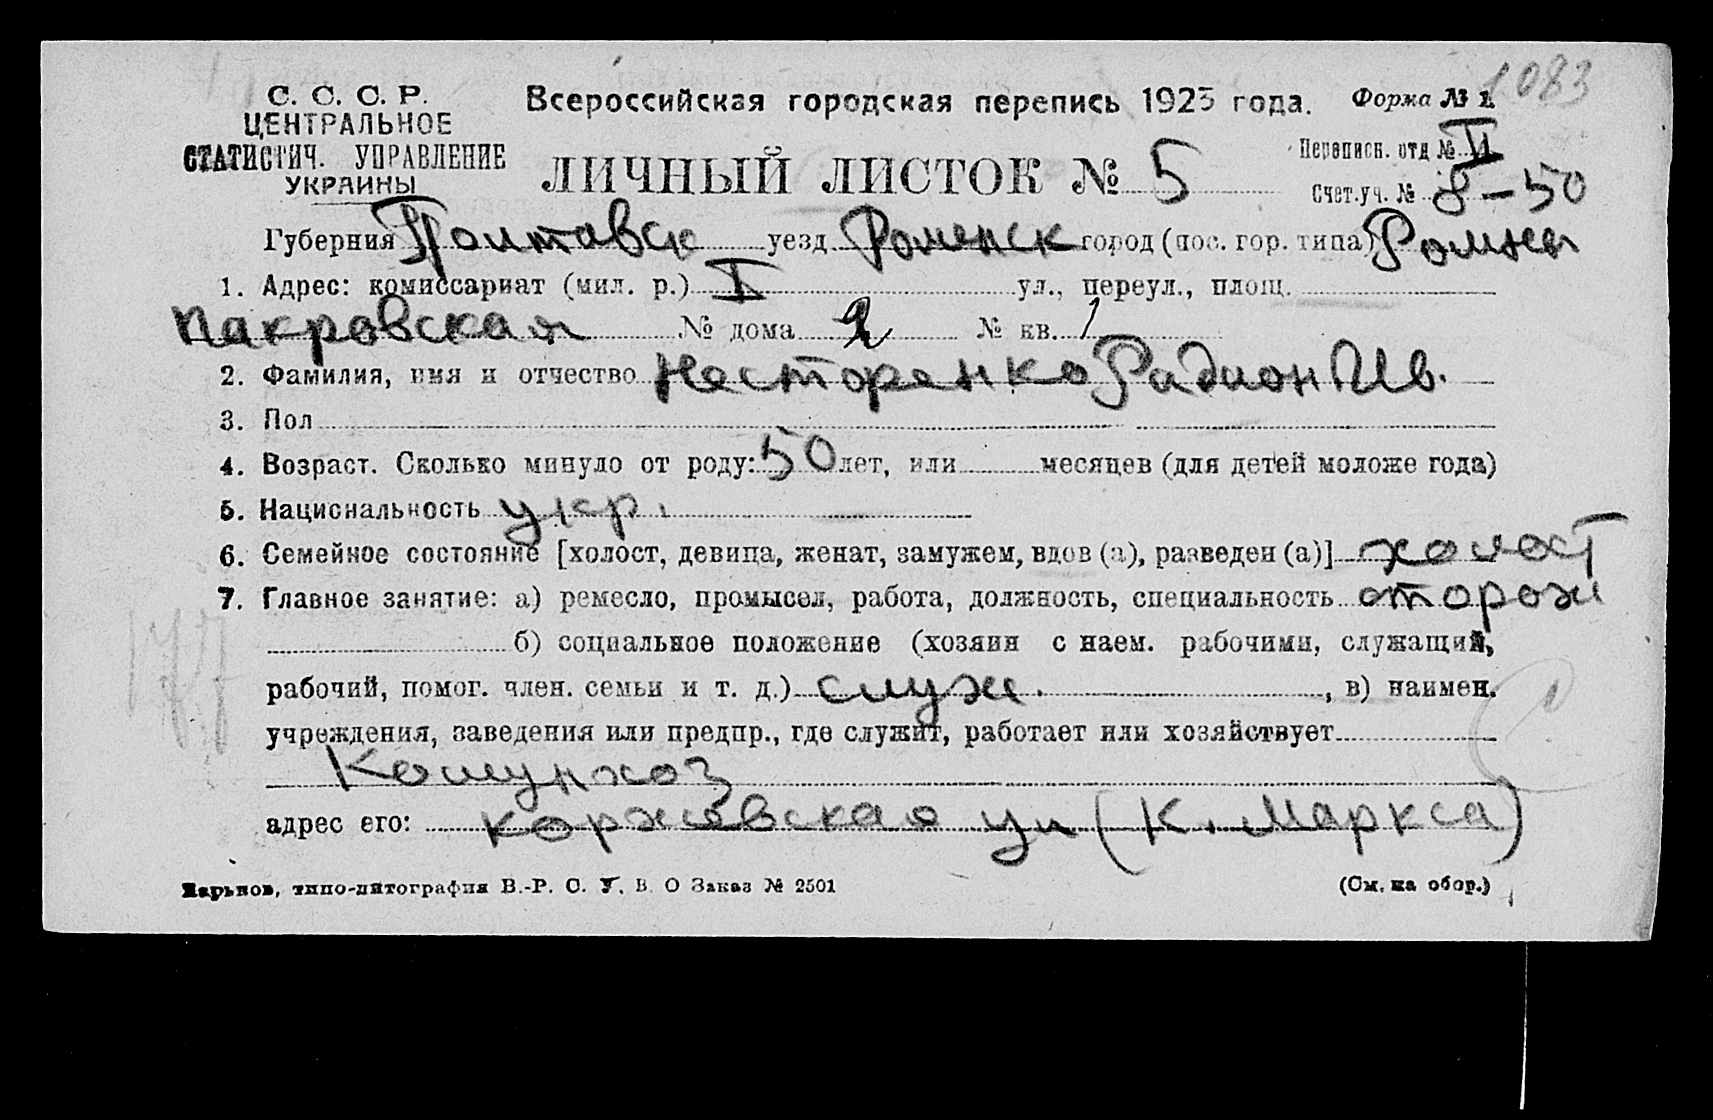 1083
С. С. С. Р.
ЦЕНТРАЛЬНОЕ
СТАТИСТИЧ. УПРАВЛЕНИЕ
УКРАИНЫ
Всероссийская городская перепись 1923 года.
Форма № 1
ЛИЧНЫЙ ЛИСТОК № 5
Переписн. отд № VI
Счет.уч. № 8-50
Губерния Полтавск уезд Роменск город (пос. гор. типа) Ромны
1. Адрес: комиссариат (мил. р.) I ул., переул., площ.
Пакровская № дома 2 № кв. 1
2. Фамилия, имя и отчество Несторенко Радион Ив.
3. Пол
4. Возраст. Сколько минуло от роду: 50 лет, или месяцев (для детей моложе года)
5. Национальность укр.
6. Семейное состояние [холост, девица, женат, замужем, вдов (а), разведен (а)] холост
7. Главное занятие: а) ремесло, промысел, работа, должность, специальность сторож
б) социальное положение (хозяин с наем. рабочими, служащий,
рабочий, помог. член. семьи и т. д.) служ. , в) наимен.
учреждения, заведения или предпр., где служит, работает или хозяйствует
Комунхоз
адрес его: Коржевская ул (К. Маркса)
Харьков, типо-литография В.-Р. С. У. В. О Заказ № 2501
(См. на обор.)